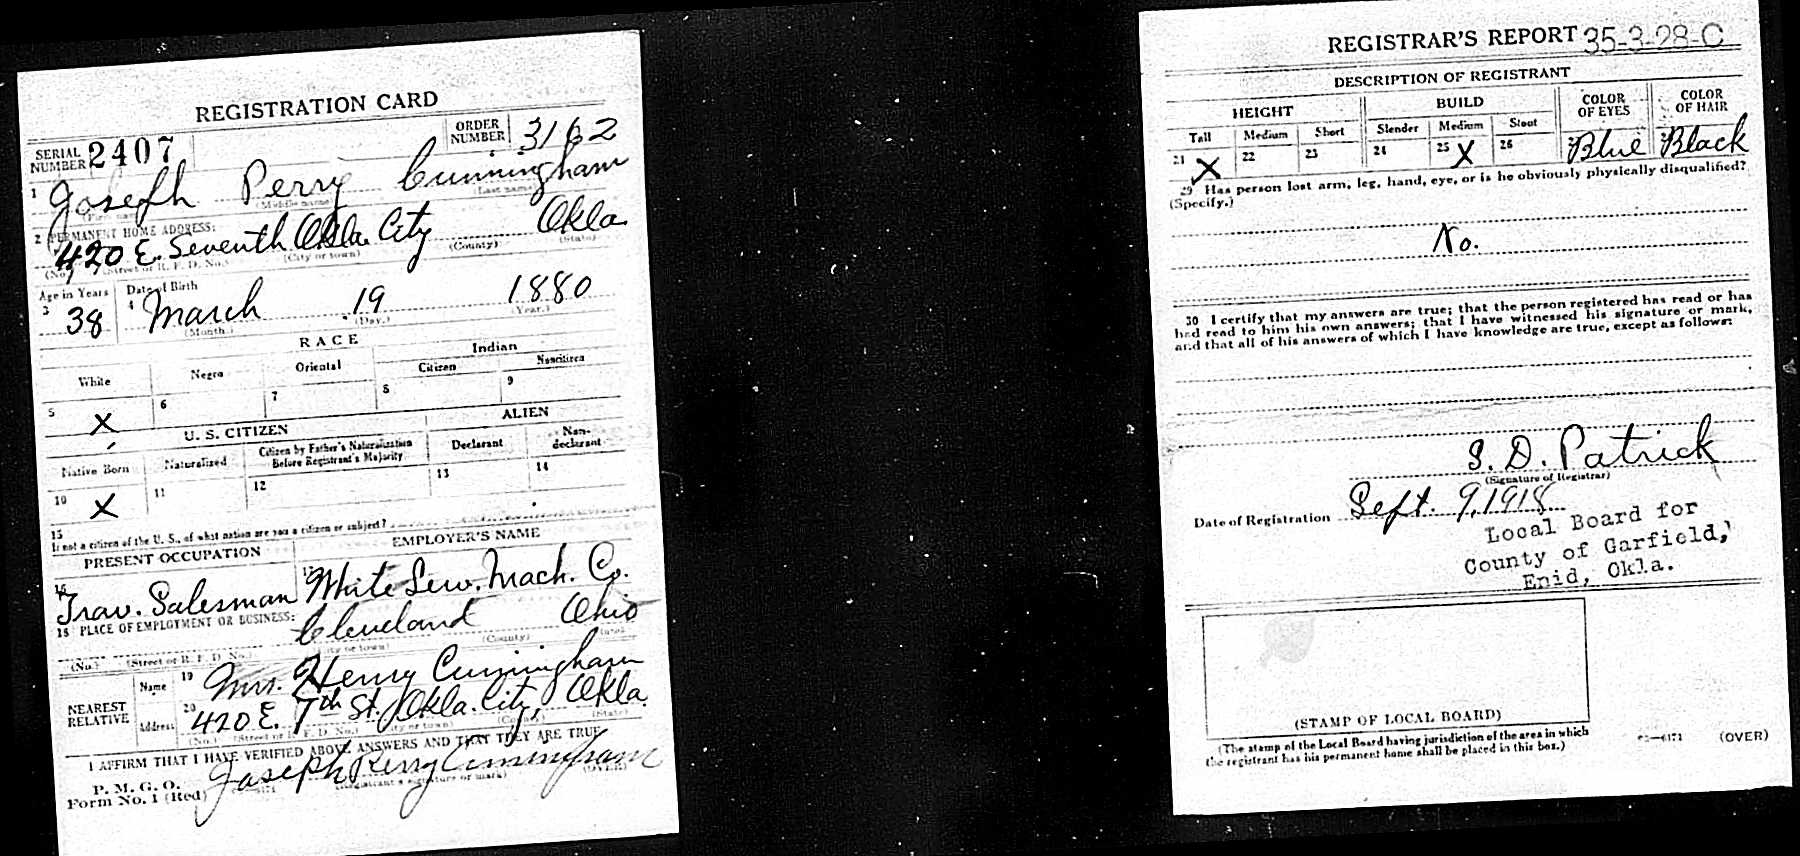 REGISTRATION CARD
SERIAL NUMBER 2407 ORDER NUMBER 3162
1 Joseph Perry Cunningham
(First name) (Middle name) (Last name)
2 PERMANENT HOME ADDRESS:
420 E. Seventh Okla. City Okla.
(No.) (Street or R. F. D. No.) (City or town) (County) (State)
Age in Years Date of Birth
3 38 4 March 19 1880
(Month.) (Day.) (Year.)
RACE
White Negro Oriental Indian
Citizen Noncitizen
5 X 6 7 8 9
U. S. CITIZEN ALIEN
Native Born Naturalized Citizen by Father's Naturalization Before Registrant's Majority Declarant Non-declarant
10 X 11 12 13 14
15 If not a citizen of the U. S., of what nation are you a citizen or subject?
PRESENT OCCUPATION EMPLOYER'S NAME
16 Trav. Salesman 17 White Sew. Mach. Co.
18 PLACE OF EMPLOYMENT OR BUSINESS:
Cleveland Ohio
(No.) (Street or R. F. D. No.) (City or town) (County) (State)
NEAREST RELATIVE Name 19 Mrs. Henry Cunningham
Address 20 420 E. 7th St. Okla. City, Okla.
(No.) (Street or R. F. D. No.) (City or town) (County) (State)
I AFFIRM THAT I HAVE VERIFIED ABOVE ANSWERS AND THAT THEY ARE TRUE
P. M. G. O.
Form No. 1 (Red) Joseph Perry Cunningham
(Registrant's signature or mark) (OVER)
REGISTRAR'S REPORT 35-3-28-C
DESCRIPTION OF REGISTRANT
HEIGHT BUILD COLOR OF EYES COLOR OF HAIR
Tall Medium Short Slender Medium Stout
21 X 22 23 24 25 X 26 Blue Black
29 Has person lost arm, leg, hand, eye, or is he obviously physically disqualified?
(Specify.)
No.
30 I certify that my answers are true; that the person registered has read or has
had read to him his own answers; that I have witnessed his signature or mark,
and that all of his answers of which I have knowledge are true, except as follows:
S. D. Patrick
(Signature of Registrar)
Date of Registration Sept. 9, 1918
Local Board for
County of Garfield,
Enid, Okla.
(STAMP OF LOCAL BOARD)
(The stamp of the Local Board having jurisdiction of the area in which
the registrant has his permanent home shall be placed in this box.)
(OVER)